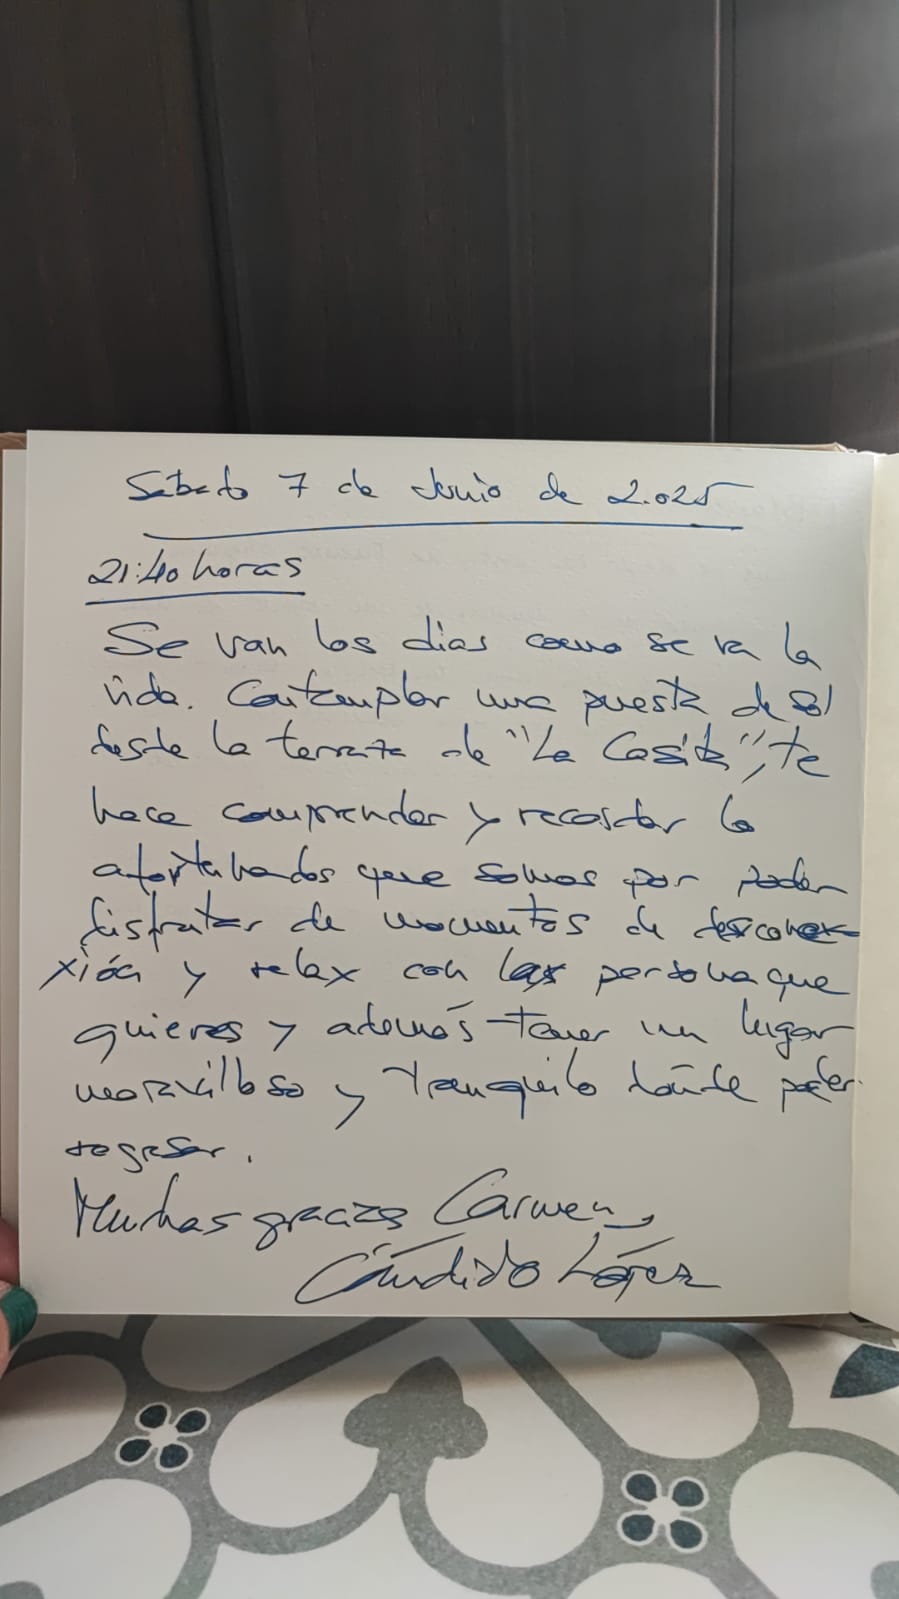 Sábado 7 de Junio de 2.025
21:40 horas
Se van los días como se va la
vida. Contemplar una puesta de sol
desde la terraza de "La Casita", te
hace comprender y recordar lo
afortunados que somos por poder
disfrutar de momentos de descone-
xión y relax con las persona que
quieres y además tener un lugar
maravilloso y tranquilo dónde poder
regresar.
Muchas gracias Carmen,
Cándido López